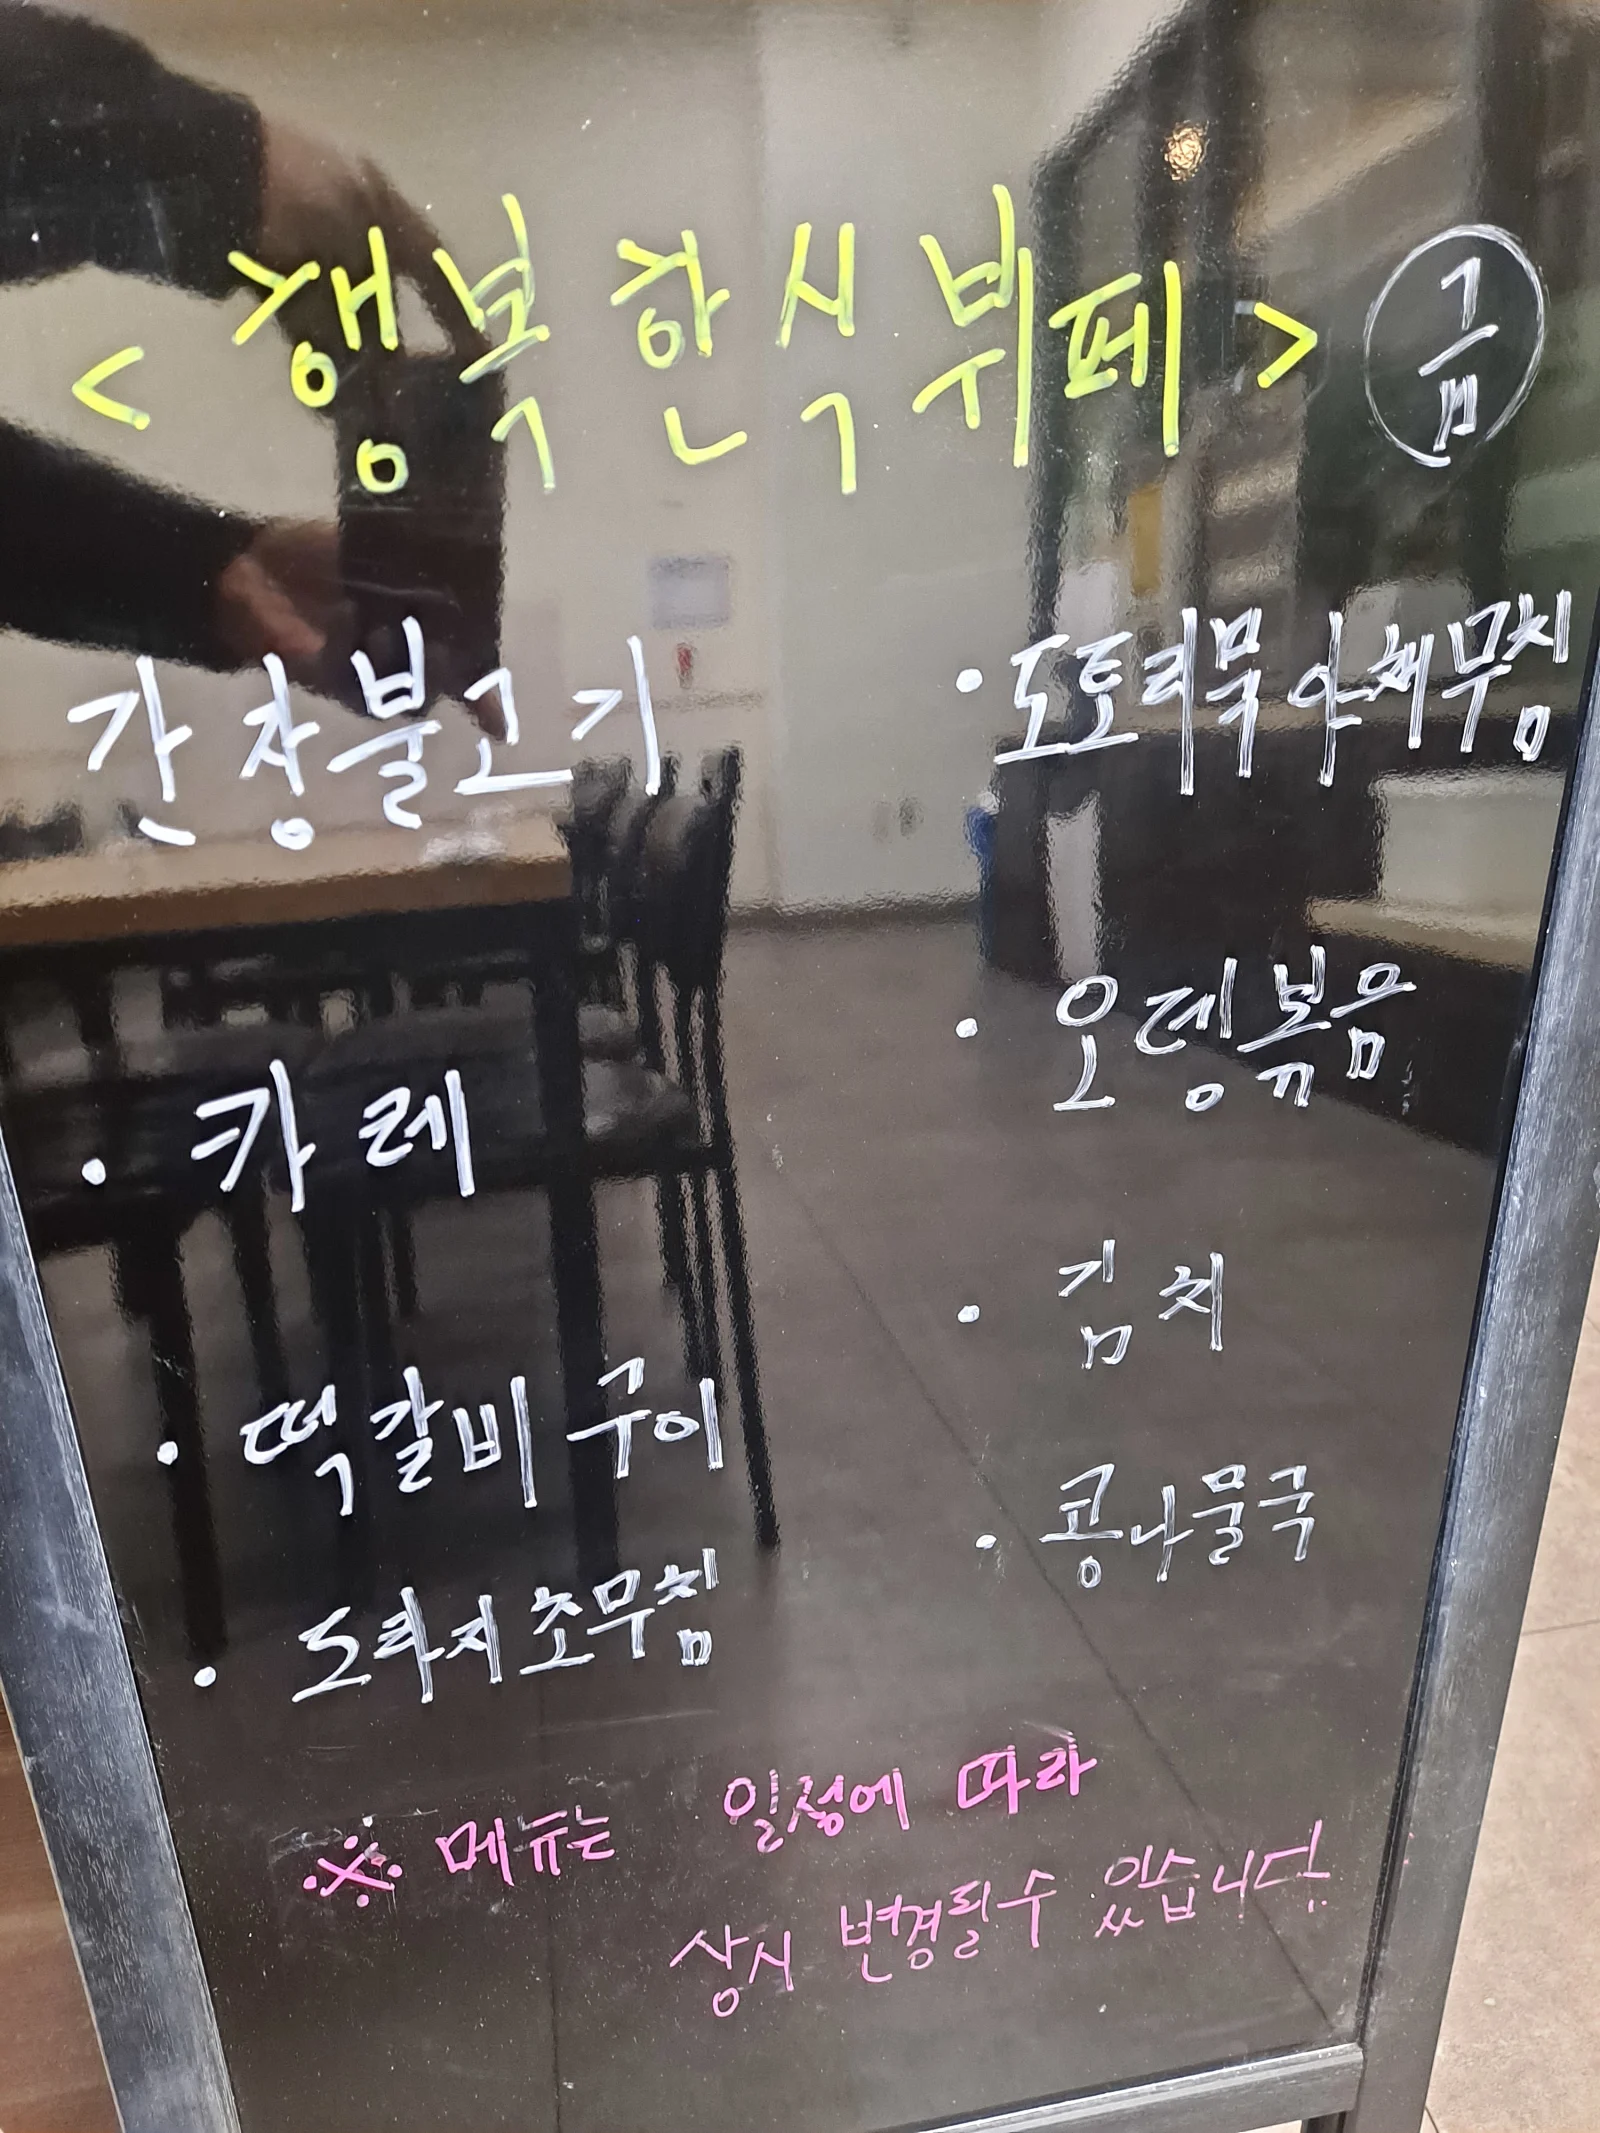 <행복한식뷔페> 금
간장불고기
· 카레
· 떡갈비 구이
· 도라지초무침
· 도토리묵야채무침
· 오뎅볶음
· 김치
· 콩나물국
※ 메뉴는 일정에 따라
상시 변경될수 있습니다.